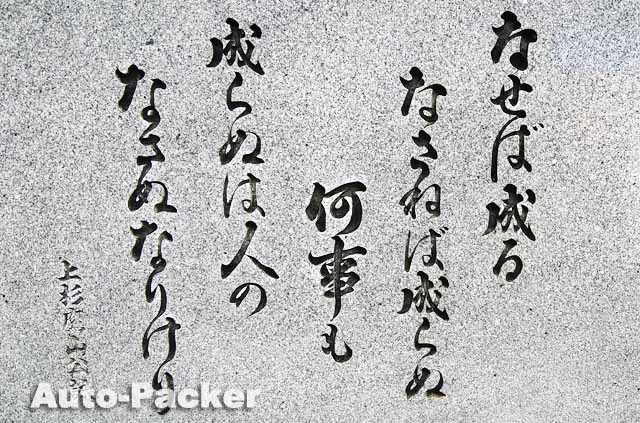 なせば成る
なさねば成らぬ
何事も
成らぬは人の
なさぬなりけり
上杉鷹山公
Auto-Packer